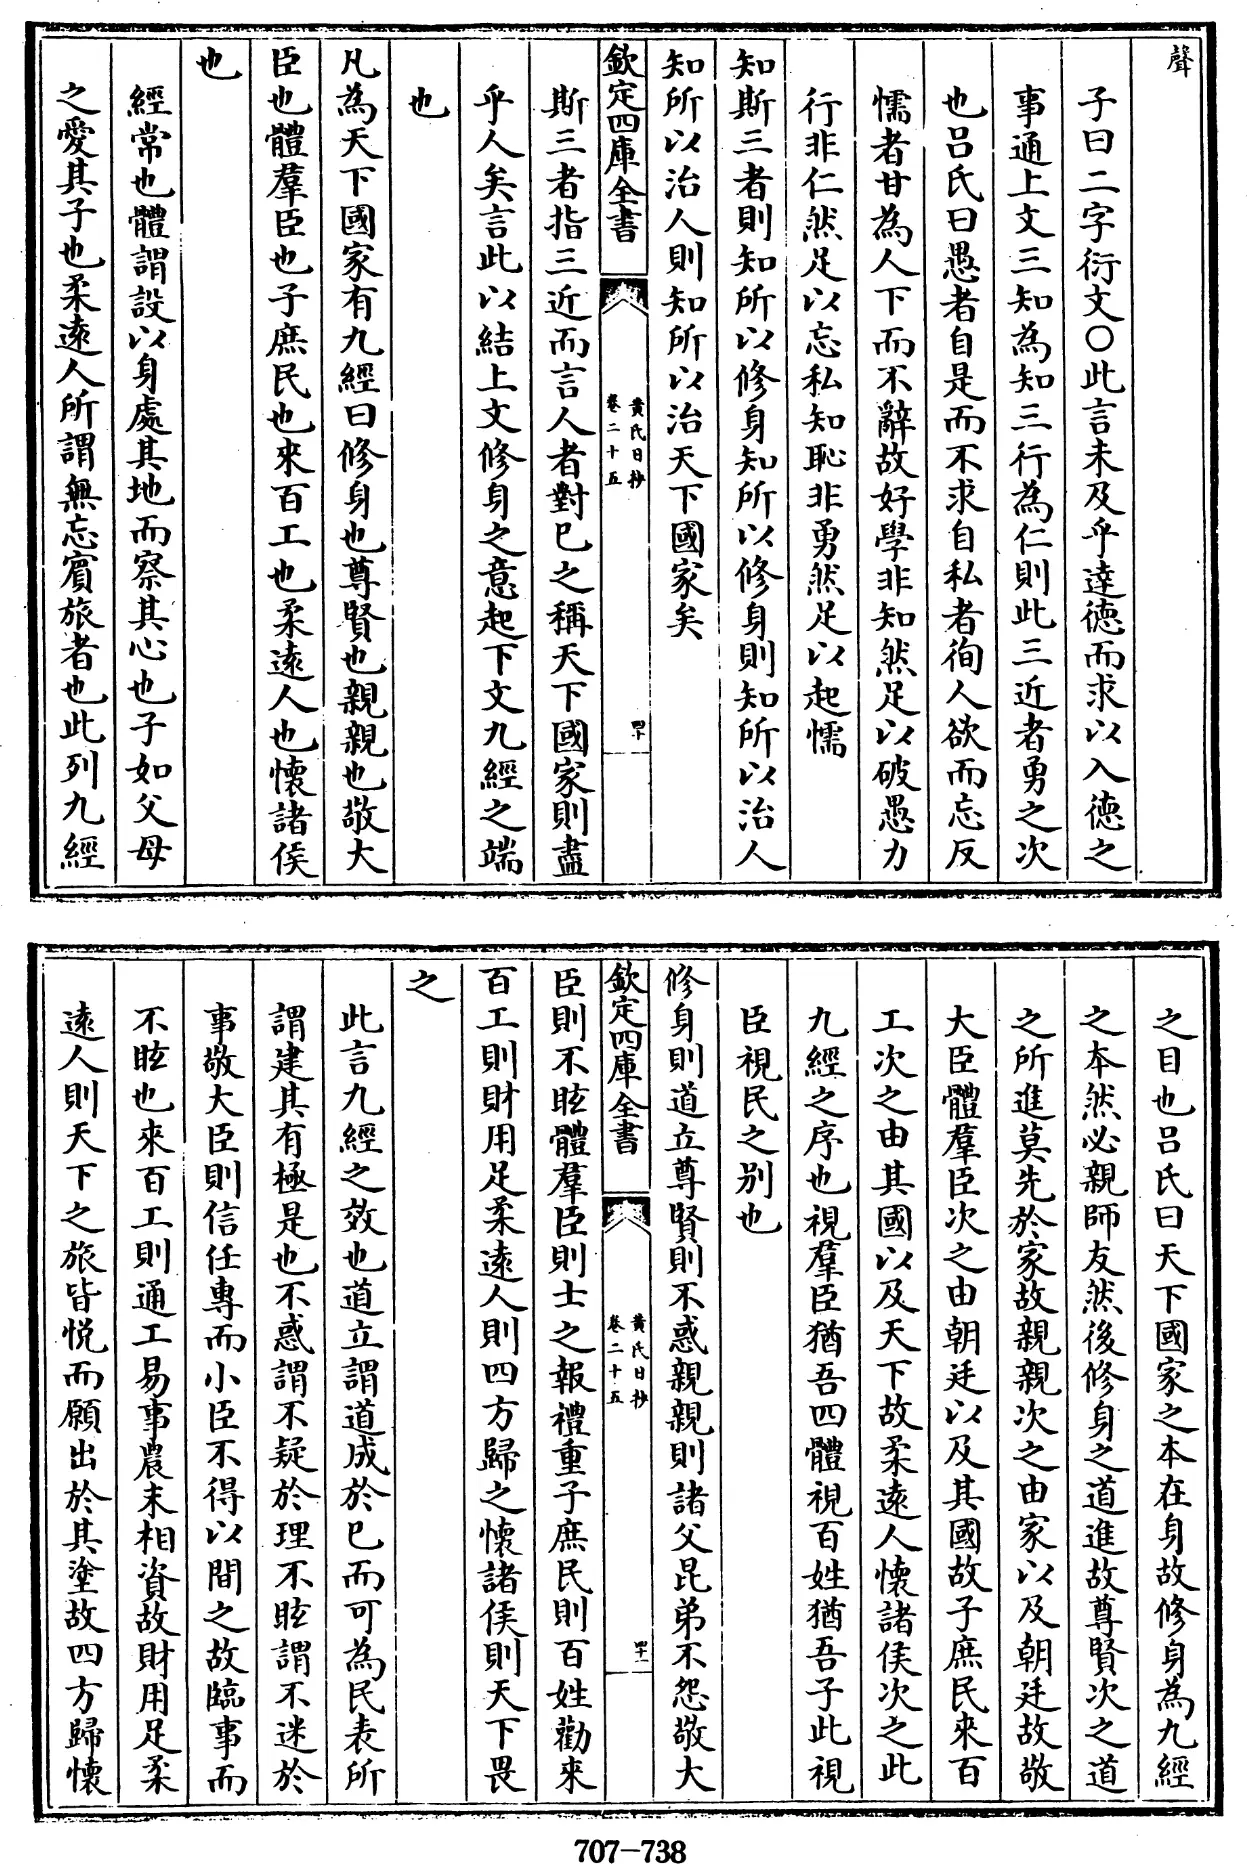 聲
子曰二字衍文○此言未及乎達德而求以入德之
事通上文三知為知三行為仁則此三近者勇之次
也呂氏曰愚者自是而不求自私者徇人欲而忘反
懦者甘為人下而不辭故好學非知然足以破愚力
行非仁然足以忘私知恥非勇然足以起懦
知斯三者則知所以修身知所以修身則知所以治人
知所以治人則知所以治天下國家矣
欽定四庫全書
黃氏日抄
卷二十五
四十
斯三者指三近而言人者對已之稱天下國家則盡
乎人矣言此以結上文修身之意起下文九經之端
也
凡為天下國家有九經曰修身也尊賢也親親也敬大
臣也體羣臣也子庶民也來百工也柔遠人也懷諸侯
也
經常也體謂設以身處其地而察其心也子如父母
之愛其子也柔遠人所謂無忘賓旅者也此列九經
之目也呂氏曰天下國家之本在身故修身為九經
之本然必親師友然後修身之道進故尊賢次之道
之所進莫先於家故親親次之由家以及朝廷故敬
大臣體羣臣次之由朝廷以及其國故子庶民來百
工次之由其國以及天下故柔遠人懷諸侯次之此
九經之序也視羣臣猶吾四體視百姓猶吾子此視
臣視民之別也
修身則道立尊賢則不惑親親則諸父昆弟不怨敬大
欽定四庫全書
黃氏日抄
卷二十五
四十一
臣則不眩體羣臣則士之報禮重子庶民則百姓勸來
百工則財用足柔遠人則四方歸之懷諸侯則天下畏
之
此言九經之效也道立謂道成於已而可為民表所
謂建其有極是也不惑謂不疑於理不眩謂不迷於
事敬大臣則信任專而小臣不得以間之故臨事而
不眩也來百工則通工易事農末相資故財用足柔
遠人則天下之旅皆悅而願出於其塗故四方歸懷
707-738